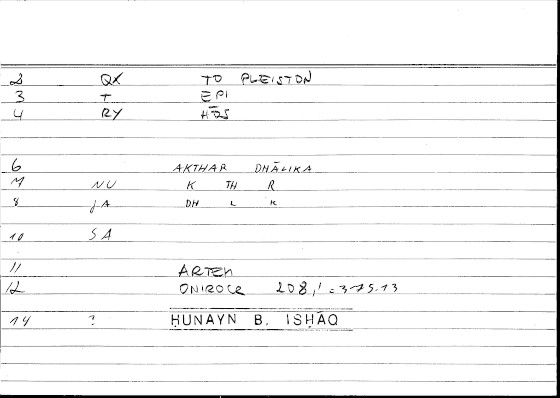 2 QX TO PLEISTON
3 T EPI
4 RY HŌS
6 AKTHAR DHĀLIKA
M NU K TH R
8 JA DH L K
10 SA
11 ARTEM
12 ONIROCR 208,1 = 375.13
14 ? ḤUNAYN B. ISḤĀQ